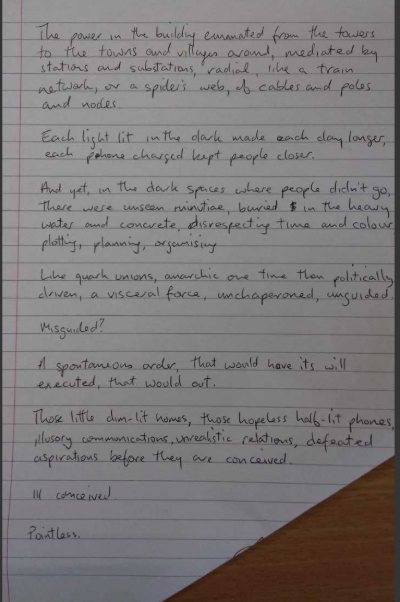 The power in the building emanated from the towers
to the towns and villages around, mediated by
stations and substations, radial, like a train
network, or a spider's web, of cables and poles
and nodes.
Each light lit in the dark made each day longer,
each phone charged kept people closer.
And yet, in the dark spaces where people didn't go,
there were unseen minutiae, buried in the heavy
water and concrete, disrespecting time and colour
plotting, planning, organising
Like quark unions, anarchic one time then politically
driven, a visceral force, unchaperoned, unguided.
Misguided?
A spontaneous order, that would have its will
executed, that would out.
Those little dim-lit homes, those hopeless half-lit phones,
illusory communications, unrealistic relations, defeated
aspirations before they are conceived.
Ill conceived
Pointless.